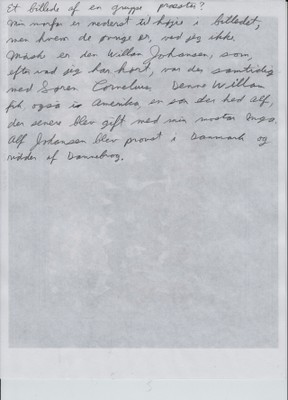 Et billede af en gruppe præster?
Min morfar er nederst til højre i billedet,
men hvem de øvrige er, ved jeg ikke.
Måske er den William Johansen, som,
efter hvad jeg har hørt, var der samtidig
med Søren Cornelius. Denne William
fik også i Amerika en søn der hed Alf,
der senere blev gift med min moster Inga.
Alf Johansen blev provst i Danmark og
ridder af Dannebrog.